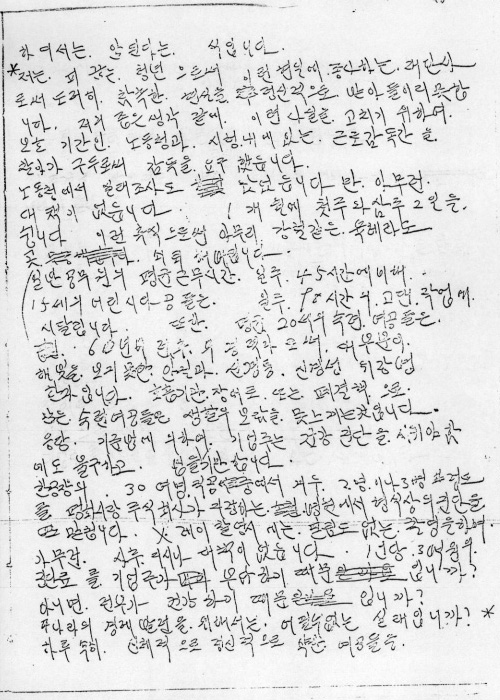 하여서는. 안된다는. 식입니다.
*저는. 피 끓는. 청년 으로써 이런 현실에. 종사하는. 재단사
로써 도저히. 참혹한. 현실을 정신적으로 받아 들이지 못합
니다. 저의 좁은 생각 끝에. 이런 사실을. 고치기 위하여.
보호 기관인. 노동청과. 시청 내에 있는. 근로감독관 을
찾아가 구두로써 감독을 요구 했읍니다.
노동청에서 실태조사도 왔었읍니다 만. 아무런.
대책이 없읍니다. 1개월에 첫주와 삼주 2일을.
쉽니다 이런 휴식으로썬 아무리. 강철같은 육체라도
곳 쇠퇴 해버립니다.
일반 공무원의 평균 근무시간. 일주. 45시간에 비해.
15세의 어린 시다공 들은. 일주. 98시간의. 고된. 작업에.
시달립니다. 또한. 평균 20세의 숙련. 여공들은.
6년 전후. 의 경력자 로써. 대부분이.
햇빛을. 보지 못한. 안질과. 신경통. 신경성 위장병
환자입니다. 호흡기관. 장애로. 또는 폐결핵 으로.
많은 숙련 여공들은 생활의 보람을. 못느끼는 것입니다.
응당. 기준법에 의하여. 기업주는 건강 진단을 시켜야 함
에도 불구하고. 법을 기만합니다.
한 공장의. 30여명 직공 중에서 겨우. 2명. 이나. 3명 정도
를 평화시장 주식회사가 지정하는. 병원에서 형식상의 진단을
마칩니다. X 레이 촬영 시에는. 필림도 없는. 촬영을 하며.
아무런. 사후. 지시나 대책이 없읍니다. 1인당. 30
진단료 를 기업주가 부담하기 때문 입니까?
아니면. 전부가 건강 하기 때문 입니까?
나라의 경제 발전을. 위해서는. 어쩔수 없는 실태입니까? *
하루 속히. 신체적 으로 정신적 으로 약한 여공들을.